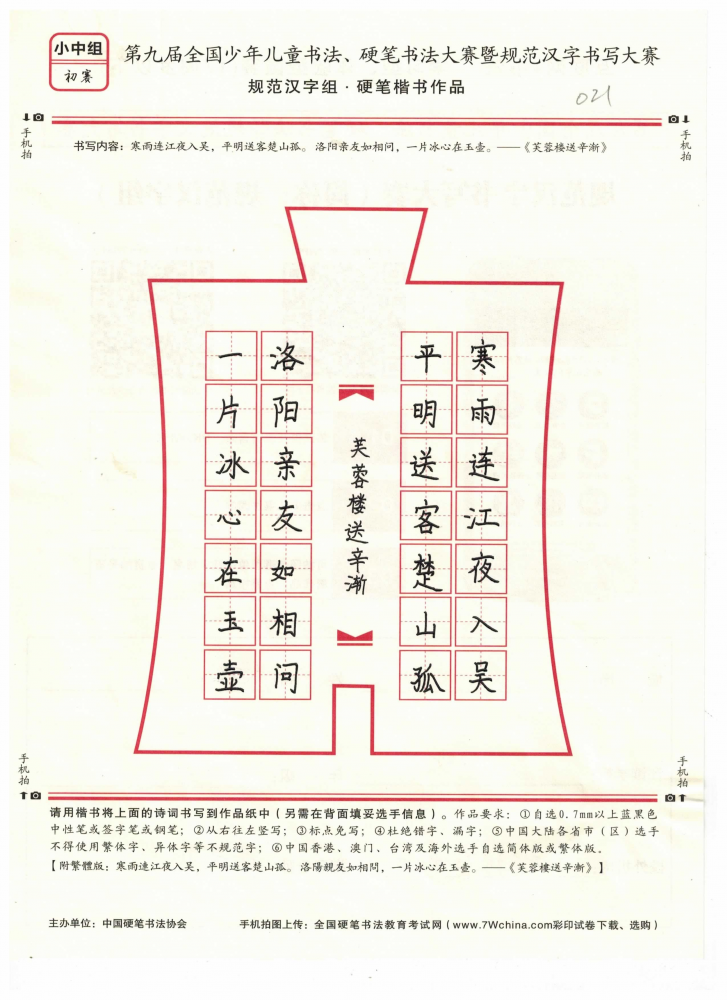 小中组
初赛
第九届全国少年儿童书法、硬笔书法大赛暨规范汉字书写大赛
规范汉字组·硬笔楷书作品
021
手机拍
手机拍
书写内容：寒雨连江夜入吴，平明送客楚山孤。洛阳亲友如相问，一片冰心在玉壶。——《芙蓉楼送辛渐》
寒雨连江夜入吴
平明送客楚山孤
芙蓉楼送辛渐
洛阳亲友如相问
一片冰心在玉壶
手机拍
手机拍
请用楷书将上面的诗词书写到作品纸中（另需在背面填妥选手信息）。作品要求：①自选0.7mm以上蓝黑色
中性笔或签字笔或钢笔；②从右往左竖写；③标点免写；④杜绝错字、漏字；⑤中国大陆各省市（区）选手
不得使用繁体字、异体字等不规范字；⑥中国香港、澳门、台湾及海外选手自选简体版或繁体版。
【附繁體版：寒雨連江夜入吳，平明送客楚山孤。洛陽親友如相問，一片冰心在玉壺。——《芙蓉樓送辛漸》】
主办单位：中国硬笔书法协会
手机拍图上传：全国硬笔书法教育考试网（www.7Wchina.com彩印试卷下载、选购）